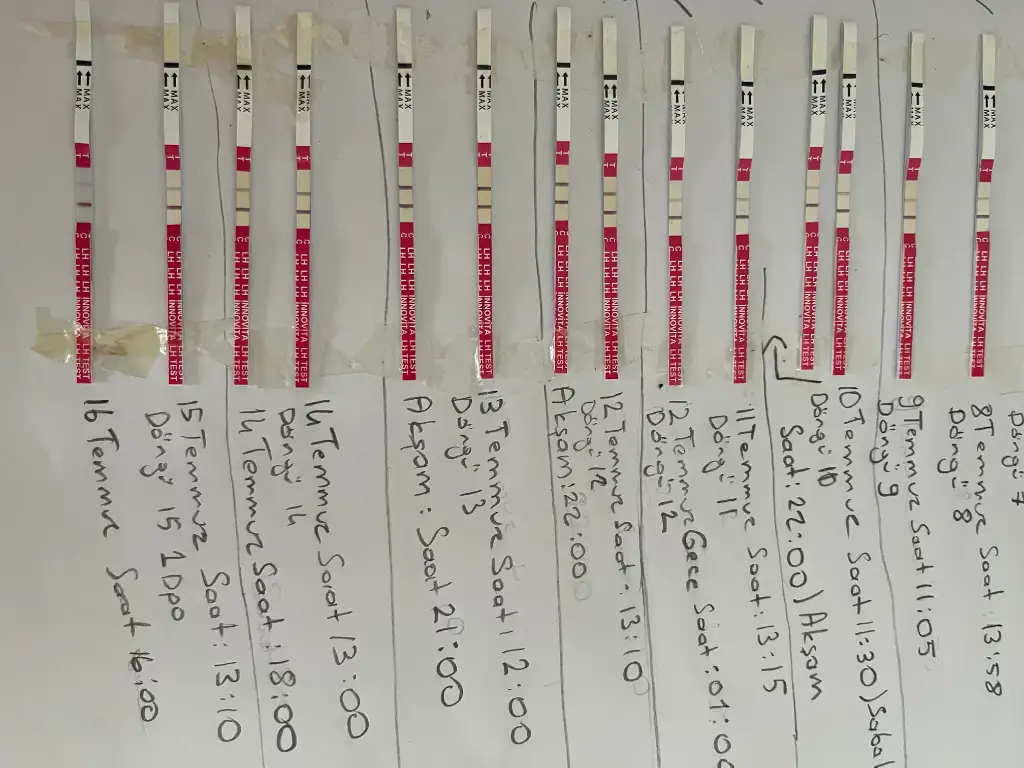 Döngü 7
8 Temmuz Saat: 13:58
Döngü 8
9 Temmuz Saat 11:05
Döngü 9
10 Temmuz Saat 11:30) Sabah
Döngü 10
Saat: 22:00) Akşam
11 Temmuz Saat: 13:15
Döngü 11
12 Temmuz Gece Saat: 01:00
Döngü 12
12 Temmuz Saat: 13:10
Döngü 12
Akşam: 22:00
13 Temmuz Saat: 12:00
Döngü 13
Akşam: Saat 21:00
14 Temmuz Saat 13:00
Döngü 14
14 Temmuz Saat: 18:00
15 Temmuz Saat: 13:10
Döngü 15 1 Dpo
16 Temmuz Saat 16:00
MAX
MAX
T
C LH LH LH INNOVITA LH TEST